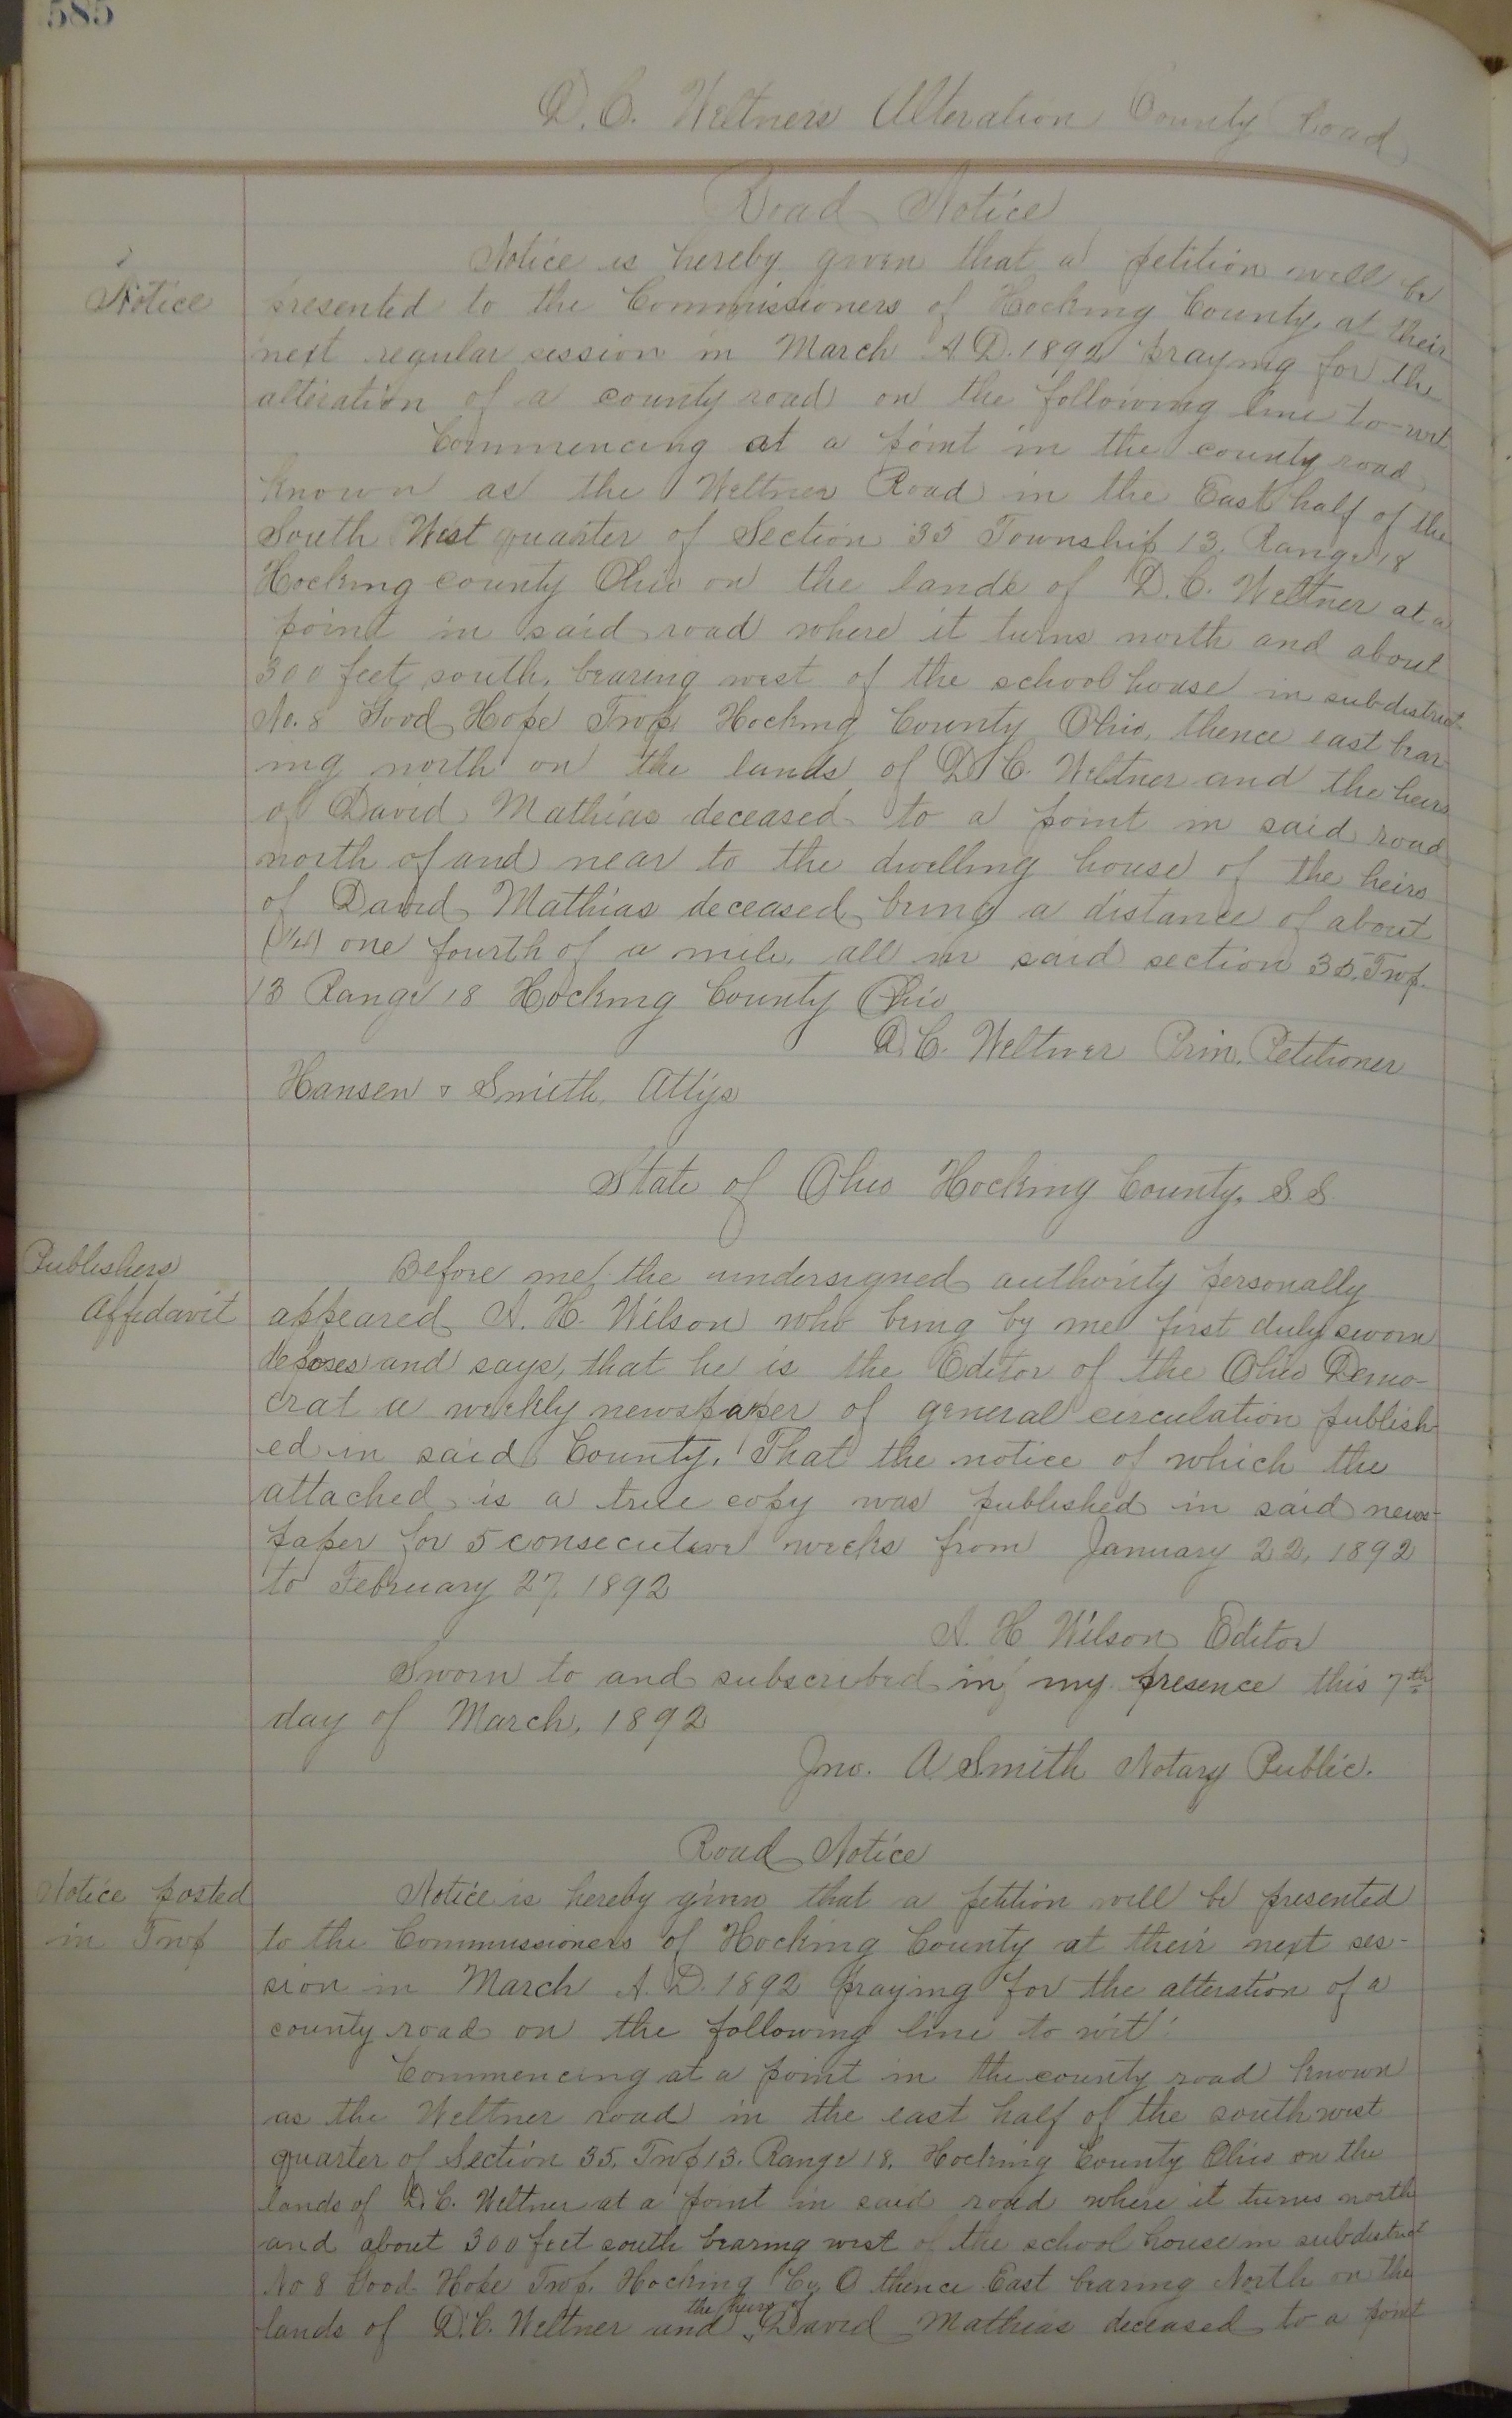 585
D. C. Weltners Alteration County Road
Road Notice
Notice
Notice is hereby given that a petition will be
presented to the Commissioners of Hocking County, at their
next regular session in March A D. 1892 praying for the
alteration of a county road on the following line to-wit
Commencing at a point in the county road
known as the Weltner Road in the East half of the
South West quarter of Section 35 Township 13, Range 18
Hocking county Ohio on the lands of D. C. Weltner at a
point in said road where it turns north and about
300 feet south, bearing west of the school house in subdistrict
No. 8 Good Hope Twp Hocking County Ohio, thence east bear
ing north on the lands of D. C. Weltner and the heirs
of David Mathias deceased to a point in said road
north of and near to the dwelling house of the heirs
of David Mathias deceased being a distance of about
(1/4) one fourth of a mile, all in said section 35, Twp.
13 Range 18 Hocking County Ohio
D. C. Weltner Prin. Petitioner
Hansen & Smith, Attys
State of Ohio Hocking County, S. S.
Publishers
Affidavit
Before me the undersigned authority personally
appeared A. H. Wilson who being by me first duly sworn
deposes and says, that he is the Editor of the Ohio Demo-
crat a weekly newspaper of general circulation publish
ed in said County. That the notice of which the
attached is a true copy was published in said news-
paper for 5 consecutive weeks from January 22, 1892
to February 27, 1892
A. H. Wilson Editor
Sworn to and subscribed in my presence this 7th
day of March, 1892
Jno. A Smith Notary Public.
Road Notice
Notice posted
in Twp
Notice is hereby given that a petition will be presented
to the Commissioners of Hocking County at their next ses-
sion in March A. D. 1892 praying for the alteration of a
county road on the following line to wit:
Commencing at a point in the county road known
as the Weltner road in the east half of the southwest
quarter of Section 35, Twp 13. Range 18. Hocking County Ohio on the
lands of D. C. Weltner at a point in said road where it turns north
and about 300 feet south bearing west of the school house in subdistrict
No. 8 Good Hope Twp. Hocking Co. O thence East bearing North on the
lands of D. C. Weltner and the heirs of David Mathias deceased to a point